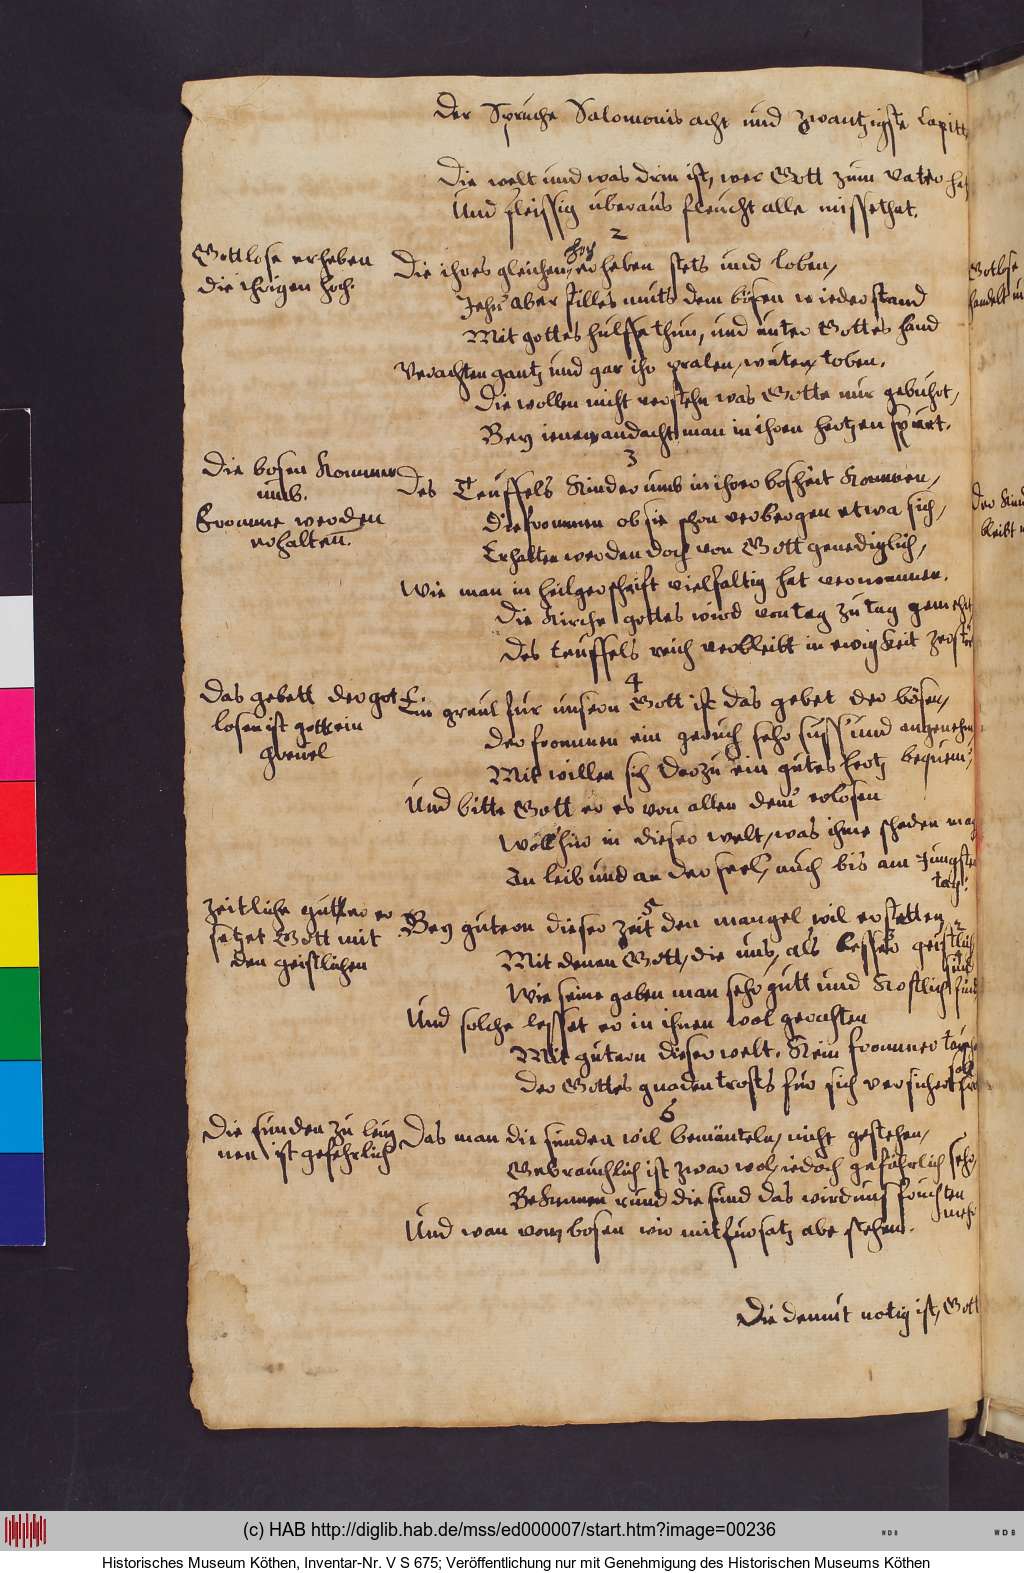 Der Spruche Salomonis acht und zwantzigste Capitt
Die welt und was drin ist, wer Gott zum vater hat
Und fleissig uberaus fleucht alle missethat.
2
Gottlose erheben
die ihrigen hoch.
Die ihres gleichen, hoy erheben stets und loben,
Jehn' aber stilles muts dem bösen wiederstand
Mit gottes hulffe thun, und unter Gottes hand
Verachten gantz und gar ihr pralen, wüten, toben.
Die wollen nicht verstehn was Gotte nur gebührt,
Bey ienen andacht man in ihren hertzen spürt.
3
Die bosen kommen
umb.
Fromme werden
erhalten.
Des Teuffels Kinder umb in ihrer bosheit kommen,
Die frommen ob sie schon verbergen etwa sich,
Erhalten werden doch von Gott genediglich,
Wie man in heilger schrift vielfaltig hat vernommen.
Die Kirche gottes wird von tag zu tag gemehrt
Des teuffels reich verbleibt in ewigkeit zerstör
4
Das gebett der got
losen ist gott ein
greuel
Ein greul fur unserm Gott ist das gebet der bösen,
der frommen ein geruch sehr suss' und angenehm
Mit willen sich derzu ein gutes hertz bequem,
Und bitte Gott er es von allen dem' erlösen
Woll' hier in dieser welt, was ihme schaden mag
An leib und an der seel', auch bis am Jungsten
tag.
5
Zeitliche gutter er
setzet Gott mit
den geistlichen
Bey gutern dieser zeit den mangel wil erstatten
Mit denen Gott, die uns, als besser geistlich
sind
Wie seine gaben man sehr gutt und kostlich find
Und solche lesset er in ihnen wol gerathen
Mit gutern dieser welt. Kein frommer
soll
der Gottes gnaden trosts für sich versichert
6
Die sunden zu leug
nen ist gefehrlich
Das man die sunden wil bemänteln, nicht gestehen,
Gebrauchlich ist zwar wol, iedoch gefährlich sehr,
Bekennen rund die sund das wird uns fruchten
mehr
Und wan vom bosen wir mit fürsatz abe stehen.
Die demut notig ist, Gott
Gotlose
handelt
Der
bleibt
(c) HAB http://diglib.hab.de/mss/ed000007/start.htm?image=00236
WDB
WDB
Historisches Museum Köthen, Inventar-Nr. V S 675; Veröffentlichung nur mit Genehmigung des Historischen Museums Köthen